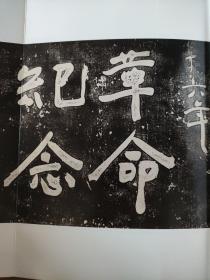 十六年
革命
紀念